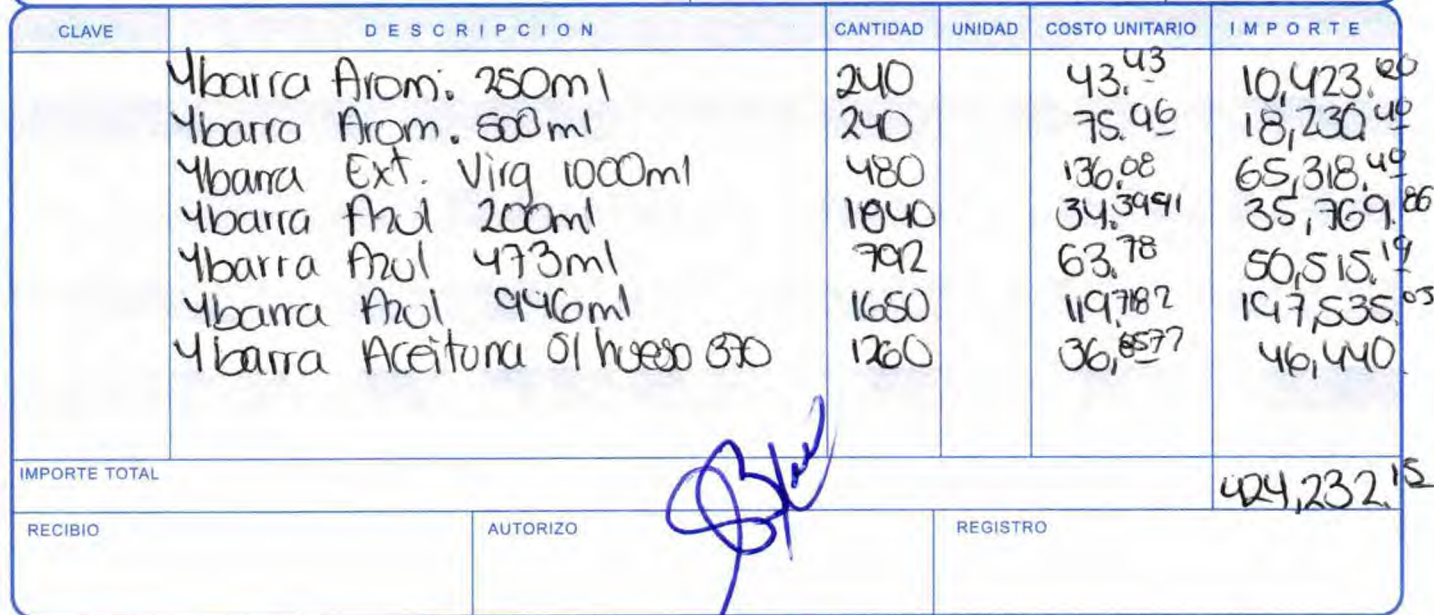 CLAVE DESCRIPCION CANTIDAD UNIDAD COSTO UNITARIO IMPORTE
Ybarra Arom. 250ml 240 43.43 10,423.20
Ybarra Arom. 500ml 240 75.96 18,230.40
Ybarra Ext. Virg 1000ml 480 136.08 65,318.40
Ybarra Azul 200ml 1040 34.3941 35,769.86
Ybarra Azul 473ml 792 63.78 50,515.19
Ybarra Azul 946ml 1650 119.7182 197,535.03
Ybarra Aceituna S/ hueso 370 1260 36.8577 46,440
IMPORTE TOTAL 424,232.15
RECIBIO AUTORIZO REGISTRO